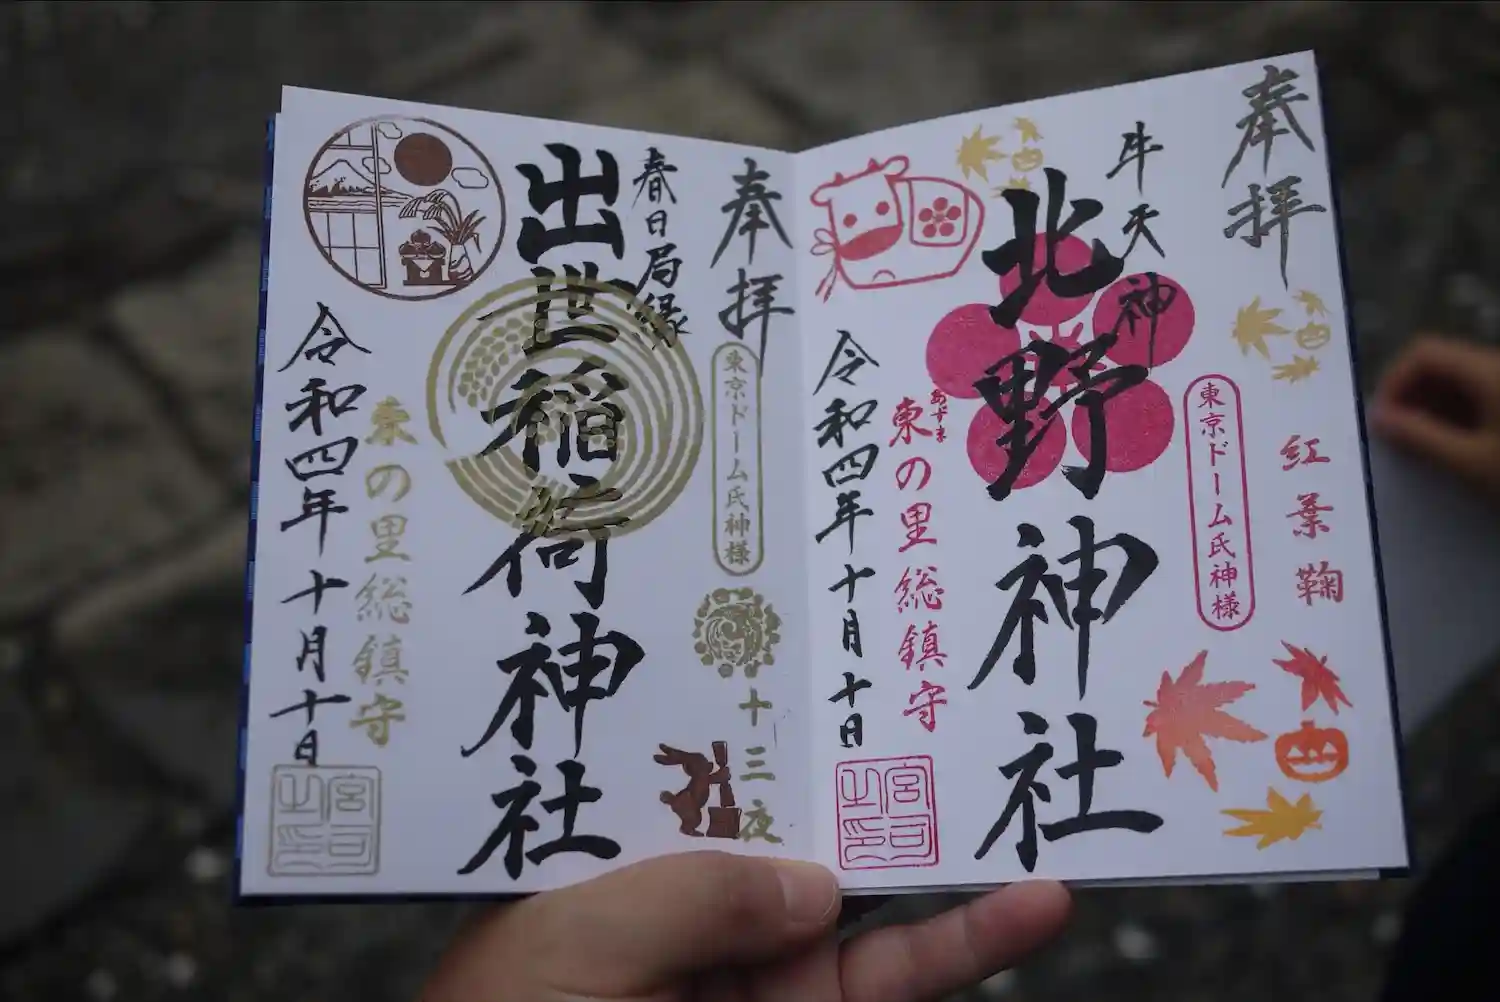 奉拝
紅葉鞠
東京ドーム氏神様
牛天神
北野神社
あずま
東の里総鎮守
令和四年十月十日
宮司之印
奉拝
東京ドーム氏神様
十三夜
春日局縁
出世稲荷神社
東の里総鎮守
令和四年十月十日
宮司之印